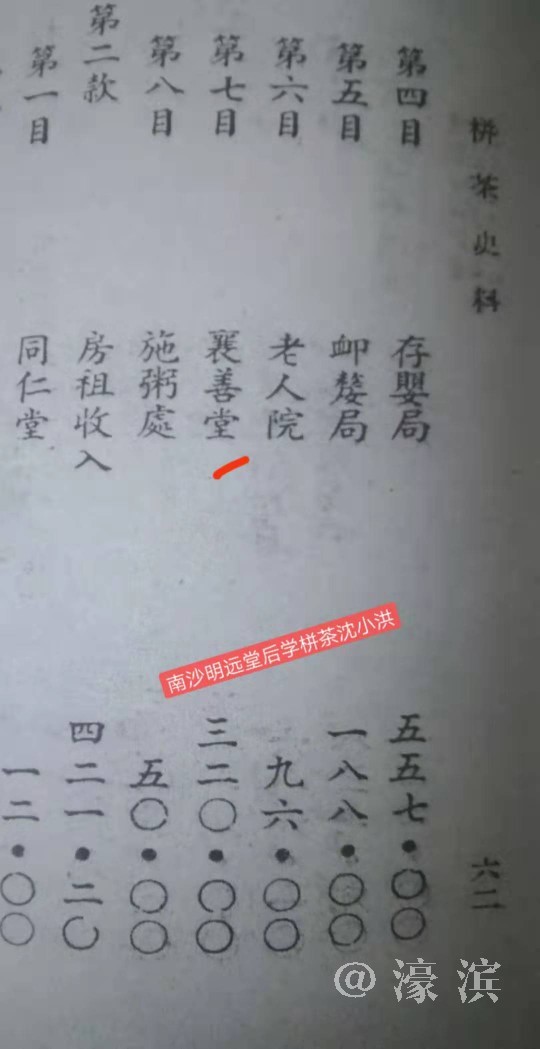 栟茶史料
六二
第四目 存嬰局 五五七•〇〇
第五目 卹嫠局 一八八•〇〇
第六目 老人院 九六•〇〇
第七目 襄善堂 三二〇•〇〇
第八目 施粥處 五〇•〇〇
第二款 房租收入 四二一•二〇
第一目 同仁堂 一二•〇〇
南沙明远堂后学栟茶沈小洪
@濠滨